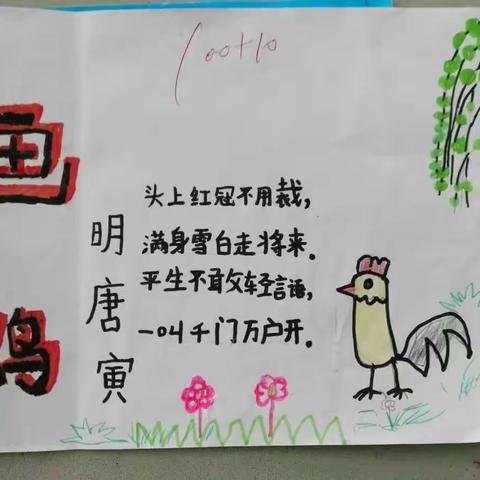 100+10
画鸡
明唐寅
头上红冠不用裁，
满身雪白走将来．
平生不敢轻言语，
一叫千门万户开．